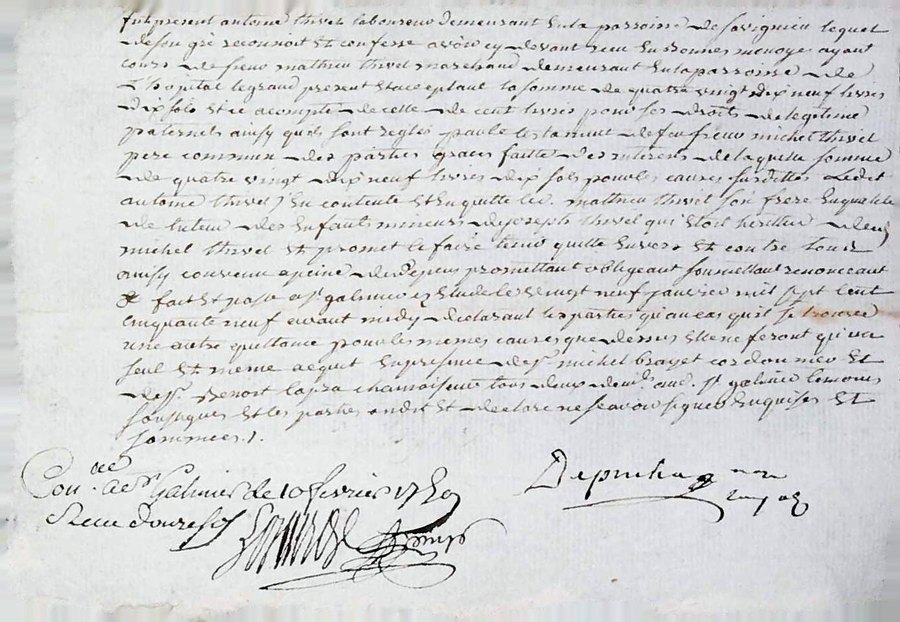 fut present antoine thivel laboureur demeurant en la parroisse de savignieu lequel
de son gré reconnoit et confesse avoir cy devant receu en bonnes monoyes ayant
cours de sieur mathieu thivel marchand demeurant en la parroisse de
l'hopital le grand present et acceptant la somme de quatre vingt dix neuf livres
dix sols et ce acompte de celle de cent livres pour ses droits de legitime
paternels ainsy quils sont reglés par le testament de feu sieur michel thivel
pere commun des parties graces faitte des interets de laquelle somme
de quatre vingt dix neuf livres dix sols pour les causes susdittes Ledit
antoine thivel s'en contente et en quitte led. mathieu thivel son frere en qualité
de tuteur des enfants mineurs de joseph thivel qui etoit heritier dud
michel thivel et promet le faire tenir quitte envers et contre tous
ainsy convenu a peine de depens promettant obligeant soumettant renonceant
& fait et passé a st galmier etude le vingt neuf janvier mil sept cent
cinquante neuf avant midy declarant les parties qu'au cas qu'il se trouve
une autre quittance pour les memes causes que dessus elle ne feront qu'un
seul et meme acquit en presence de sr michel cordonnier et
de sr Benoit chamoiseur tous deux aud. st galmier temoins
soussignes et les parties ont dit et declaré ne scavoir signer enquises et
sommees ./.
Con. lée a St Galmier le 10 fevrier 1759
Receu douze s